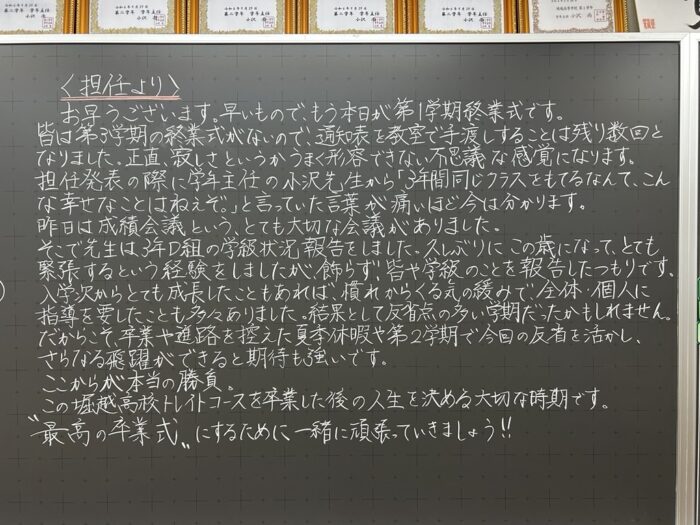 第二学年 学年主任
小沢 尚
第二学年 学年主任
小沢 尚
第二学年 学年主任
第二学年 学年主任
〈担任より〉
お早うございます。早いもので、もう本日が第1学期終業式です。
皆は第3学期の終業式がないので、通知表を教室で手渡しすることは残り数回と
なりました。正直、寂しさというかうまく形容できない不思議な感覚になります。
担任発表の際に学年主任の小沢先生から「3年間同じクラスをもてるなんて、こん
な幸せなことはねえぞ。」と言っていた言葉が痛いほど今は分かります。
昨日は成績会議という、とても大切な会議がありました。
そこで先生は3年D組の学級状況報告をしました。久しぶりにこの歳になって、とても
緊張するという経験をしましたが、飾らず、皆や学級のことを報告したつもりです。
入学次からとても成長したこともあれば、慣れからくる気の緩みで、全体・個人に
指導を要したことも多々ありました。結果として反省点の多い学期だったかもしれません。
だからこそ、卒業や進路を控えた夏季休暇や第2学期で今回の反省を活かし、
さらなる飛躍ができると期待も強いです。
ここからが本当の勝負。
この堀越高校トレイトコースを卒業した後の人生を決める大切な時期です。
“最高の卒業式„にするために一緒に頑張っていきましょう!!